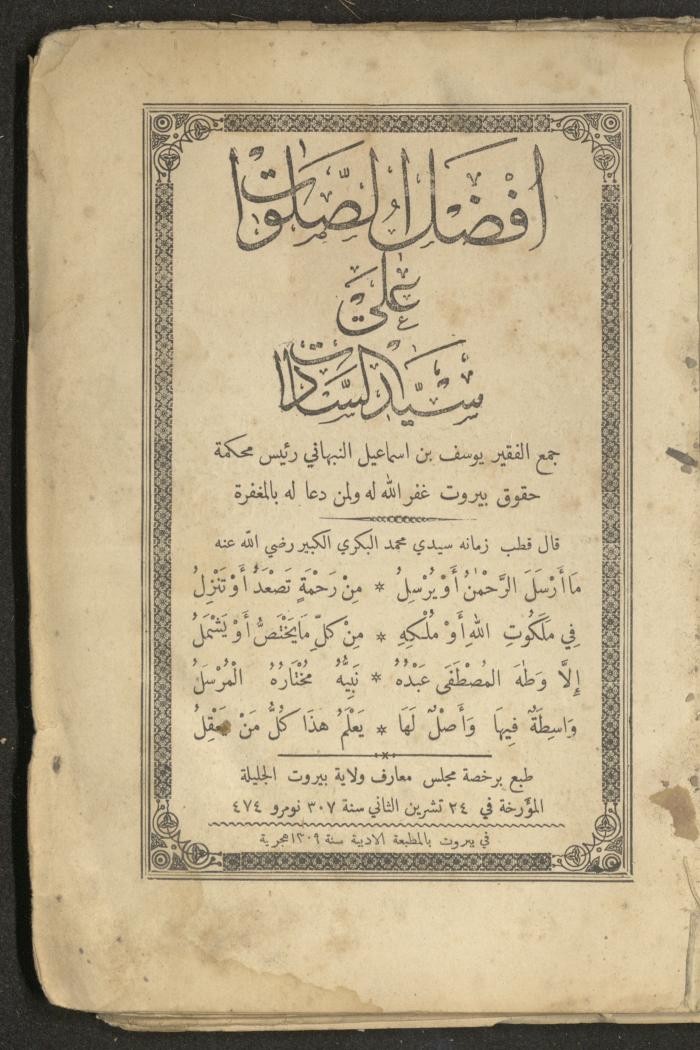 أفضل الصلوات
على
سيد السادات
جمع الفقير يوسف بن اسماعيل النبهاني رئيس محكمة
حقوق بيروت غفر الله له ولمن دعا له بالمغفرة
قال قطب زمانه سيدي محمد البكري الكبير رضي الله عنه
مَا أَرْسَلَ الرَّحْمٰنُ أَوْ يُرْسِلُ * مِنْ رَحْمَةٍ تَصْعَدُ أَوْ تَنْزِلُ
فِي مَلَكُوتِ اللهِ أَوْ مُلْكِهِ * مِنْ كُلِّ مَا يَخْتَصُّ أَوْ يَشْمَلُ
إِلَّا وَطٰهَ المُصْطَفَى عَبْدُهُ * نَبِيُّهُ مُخْتَارُهُ الْمُرْسَلُ
وَاسِطَةٌ فِيهَا وَأَصْلٌ لَهَا * يَعْلَمُ هذَا كُلُّ مَنْ يَعْقِلُ
طبع برخصة مجلس معارف ولاية بيروت الجليلة
المؤرخة في ٢٤ تشرين الثاني سنة ٣٠٧ نومرو ٤٧٤
في بيروت بالمطبعة الادبية سنة ١٣٠٩ هجرية